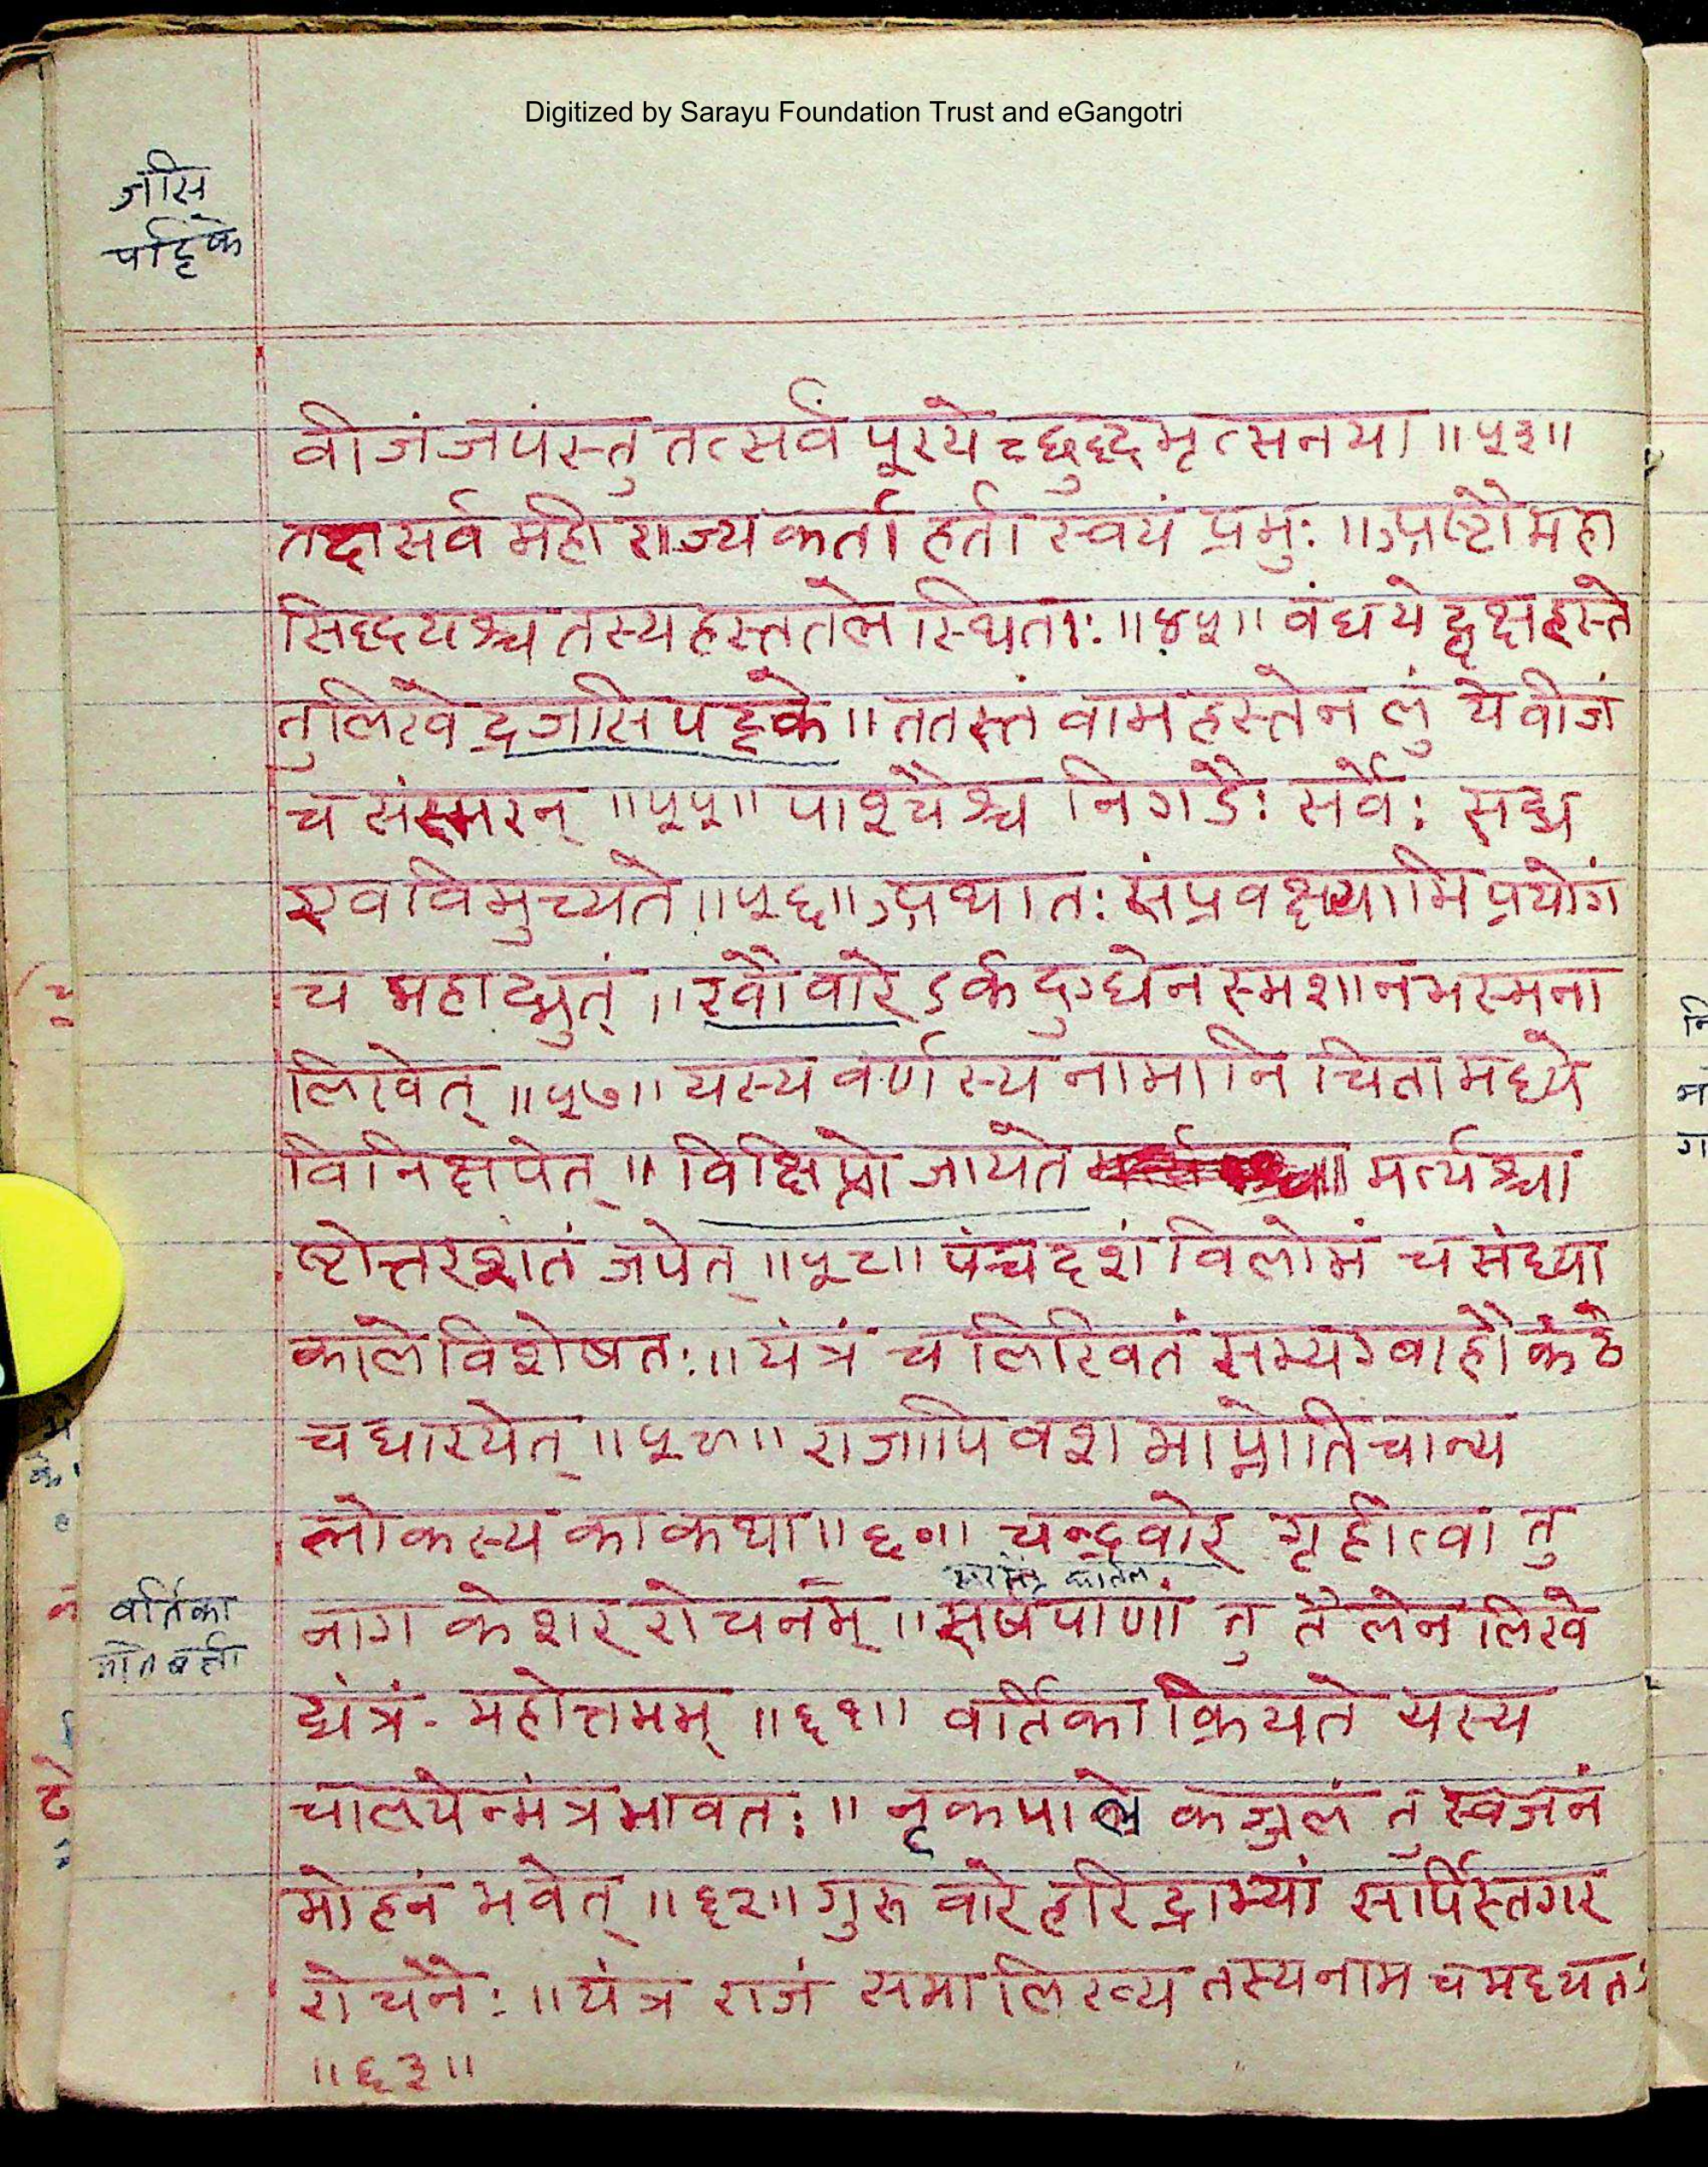 Digitized by Sarayu Foundation Trust and eGangotri
जासि
पट्टिके
वीजं जपंस्तु तत्सर्वं पूरयेच्छुद्धमृत्सनया ॥५३॥
तद्वा सर्व मही राज्य कर्ता हर्ता स्वयं प्रभुः ॥ अष्टौ महा
सिद्धयश्च तस्य हस्ततले स्थिताः ॥४५॥ वंधयेद्वृक्ष हस्ते
तु लिखेद्रजासि पट्टके ॥ ततस्तं वाम हस्तेन लुं ये वीजं
च संस्मरन् ॥५५॥ पाश्यैश्च निगडैः सर्वैः सद्य
एव विमुच्यते ॥५६॥ अथातः संप्रवक्ष्यामि प्रयोगं
च महाद्भुतं ॥ रवौ वारे ऽर्क दुग्धेन स्मशान भस्मना
लिखेत् ॥५७॥ यस्य वर्णस्य नामानि चिता मध्ये
विनिक्षपेत् ॥ विक्षिप्तो जायते मर्त्यश्चा
ष्टोत्तरशतं जपेत् ॥५८॥ पंचदशं विलोमं च संध्या
काले विशेषतः ॥ यंत्रं च लिखितं सम्यग्वाहौ कंठे
च धारयेत् ॥५९॥ राजापि वश माप्नोति चान्य
लोकस्य का कथा ॥६०॥ चन्द्रवारे गृहीत्वा तु
वर्तिका
नाग केशर रोचनम् ॥ सर्षपाणां तु तैलेन लिखे
द्यंत्रं महोत्तमम् ॥६१॥ वर्तिका क्रियते यस्य
चालयेन्मंत्र भावतः ॥ नृकपाले कज्जलं तु स्वजनं
मोहनं भवेत् ॥६२॥ गुरु वारे हरिद्राभ्यां सर्पिस्तगर
रोचनैः ॥ यंत्र राजं समालिख्य तस्य नाम च मध्यतः
॥६३॥